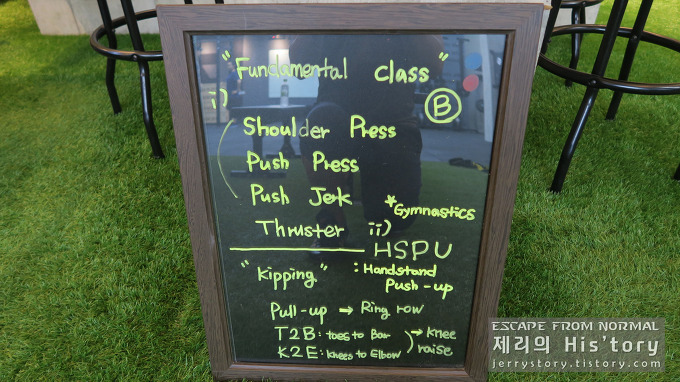 "Fundamental class"
B
i)
Shoulder Press
Push Press
Push Jerk
Thruster
*Gymnastics
ii) HSPU
: Handstand
Push-up
"Kipping"
Pull-up → Ring row
T2B: toes to Bar
K2E: knees to Elbow
→ knee
raise
ESCAPE FROM NORMAL
제리의 His'tory
jerrystory.tistory.com